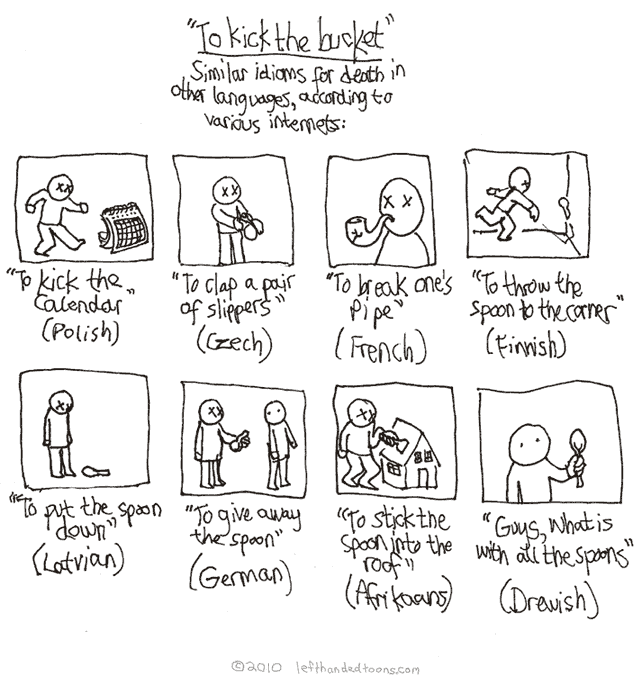 "To kick the bucket"
Similar idioms for death in
other languages, according to
various internets:
"To kick the
Calendar"
(Polish)
"To clap a pair
of slippers"
(Czech)
"To break one's
Pipe"
(French)
"To throw the
spoon to the corner"
(Finnish)
"To put the spoon
down"
(Latvian)
"To give away
the spoon"
(German)
"To stick the
spoon into the
roof"
(Afrikaans)
"Guys, What is
with all the spoons"
(Drewish)
©2010 lefthandedtoons.com